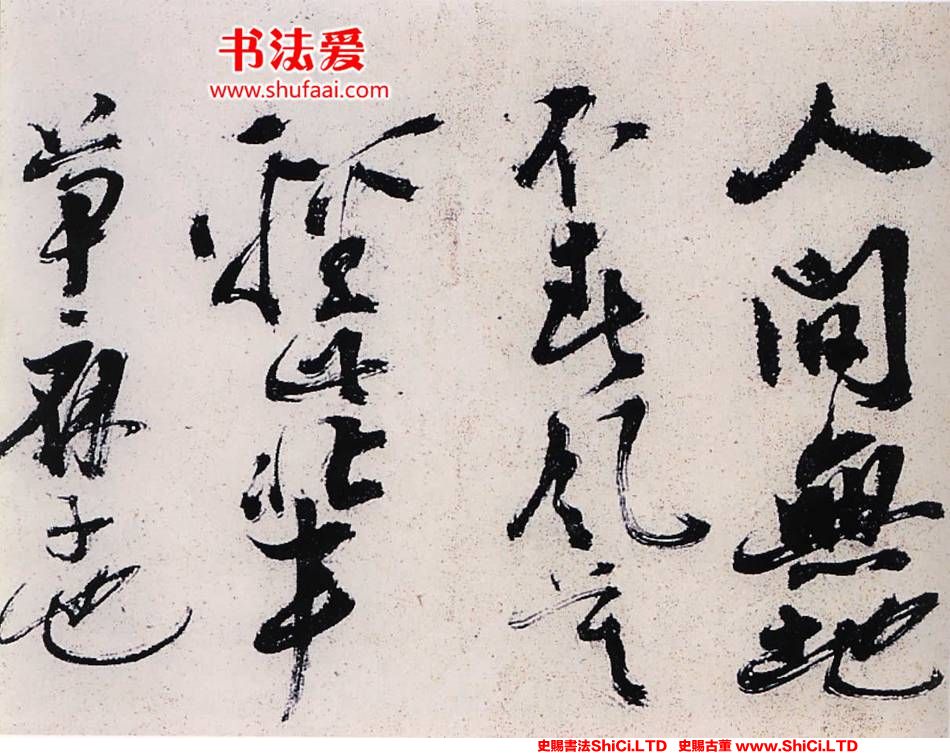 书法爱
www.shufaai.com
人間無地
不春風莫
輕此輩
子也
史賜書法ShiCi.LTD 史賜古董 www.ShiCi.LTD